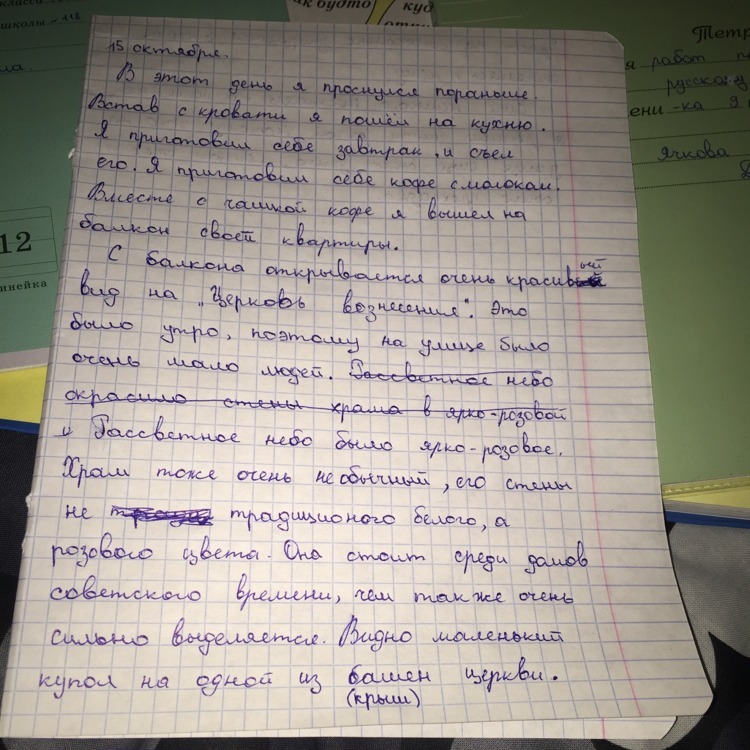 класси
школы - 118
ма.
12
инейка
ак будто
куд
Тетр
я работ п
русскому
ени -ка 9
Ячкова
15 октября.
В этот день я проснулся пораньше.
Встав с кровати я пошёл на кухню.
Я приготовил себе завтрак и съел
его. Я приготовил себе кофе с молокам.
Вместе с чашкой кофе я вышел на
балкон своей квартиры.
С балкона открывается очень красивый
вид на „Церковь вознесения". Это
было утро, поэтому на улице было
очень мало людей. Рассветное небо
окрасило стены храма в ярко-розовой
Рассветное небо было ярко-розовое.
Храм тоже очень необычный, его стены
не традиционого белого, а
розового цвета. Она стоит среди дамов
советского времени, чем так же очень
сильно выделяется. Видно маленький
купол на одной из башен церкви.
(крыш)